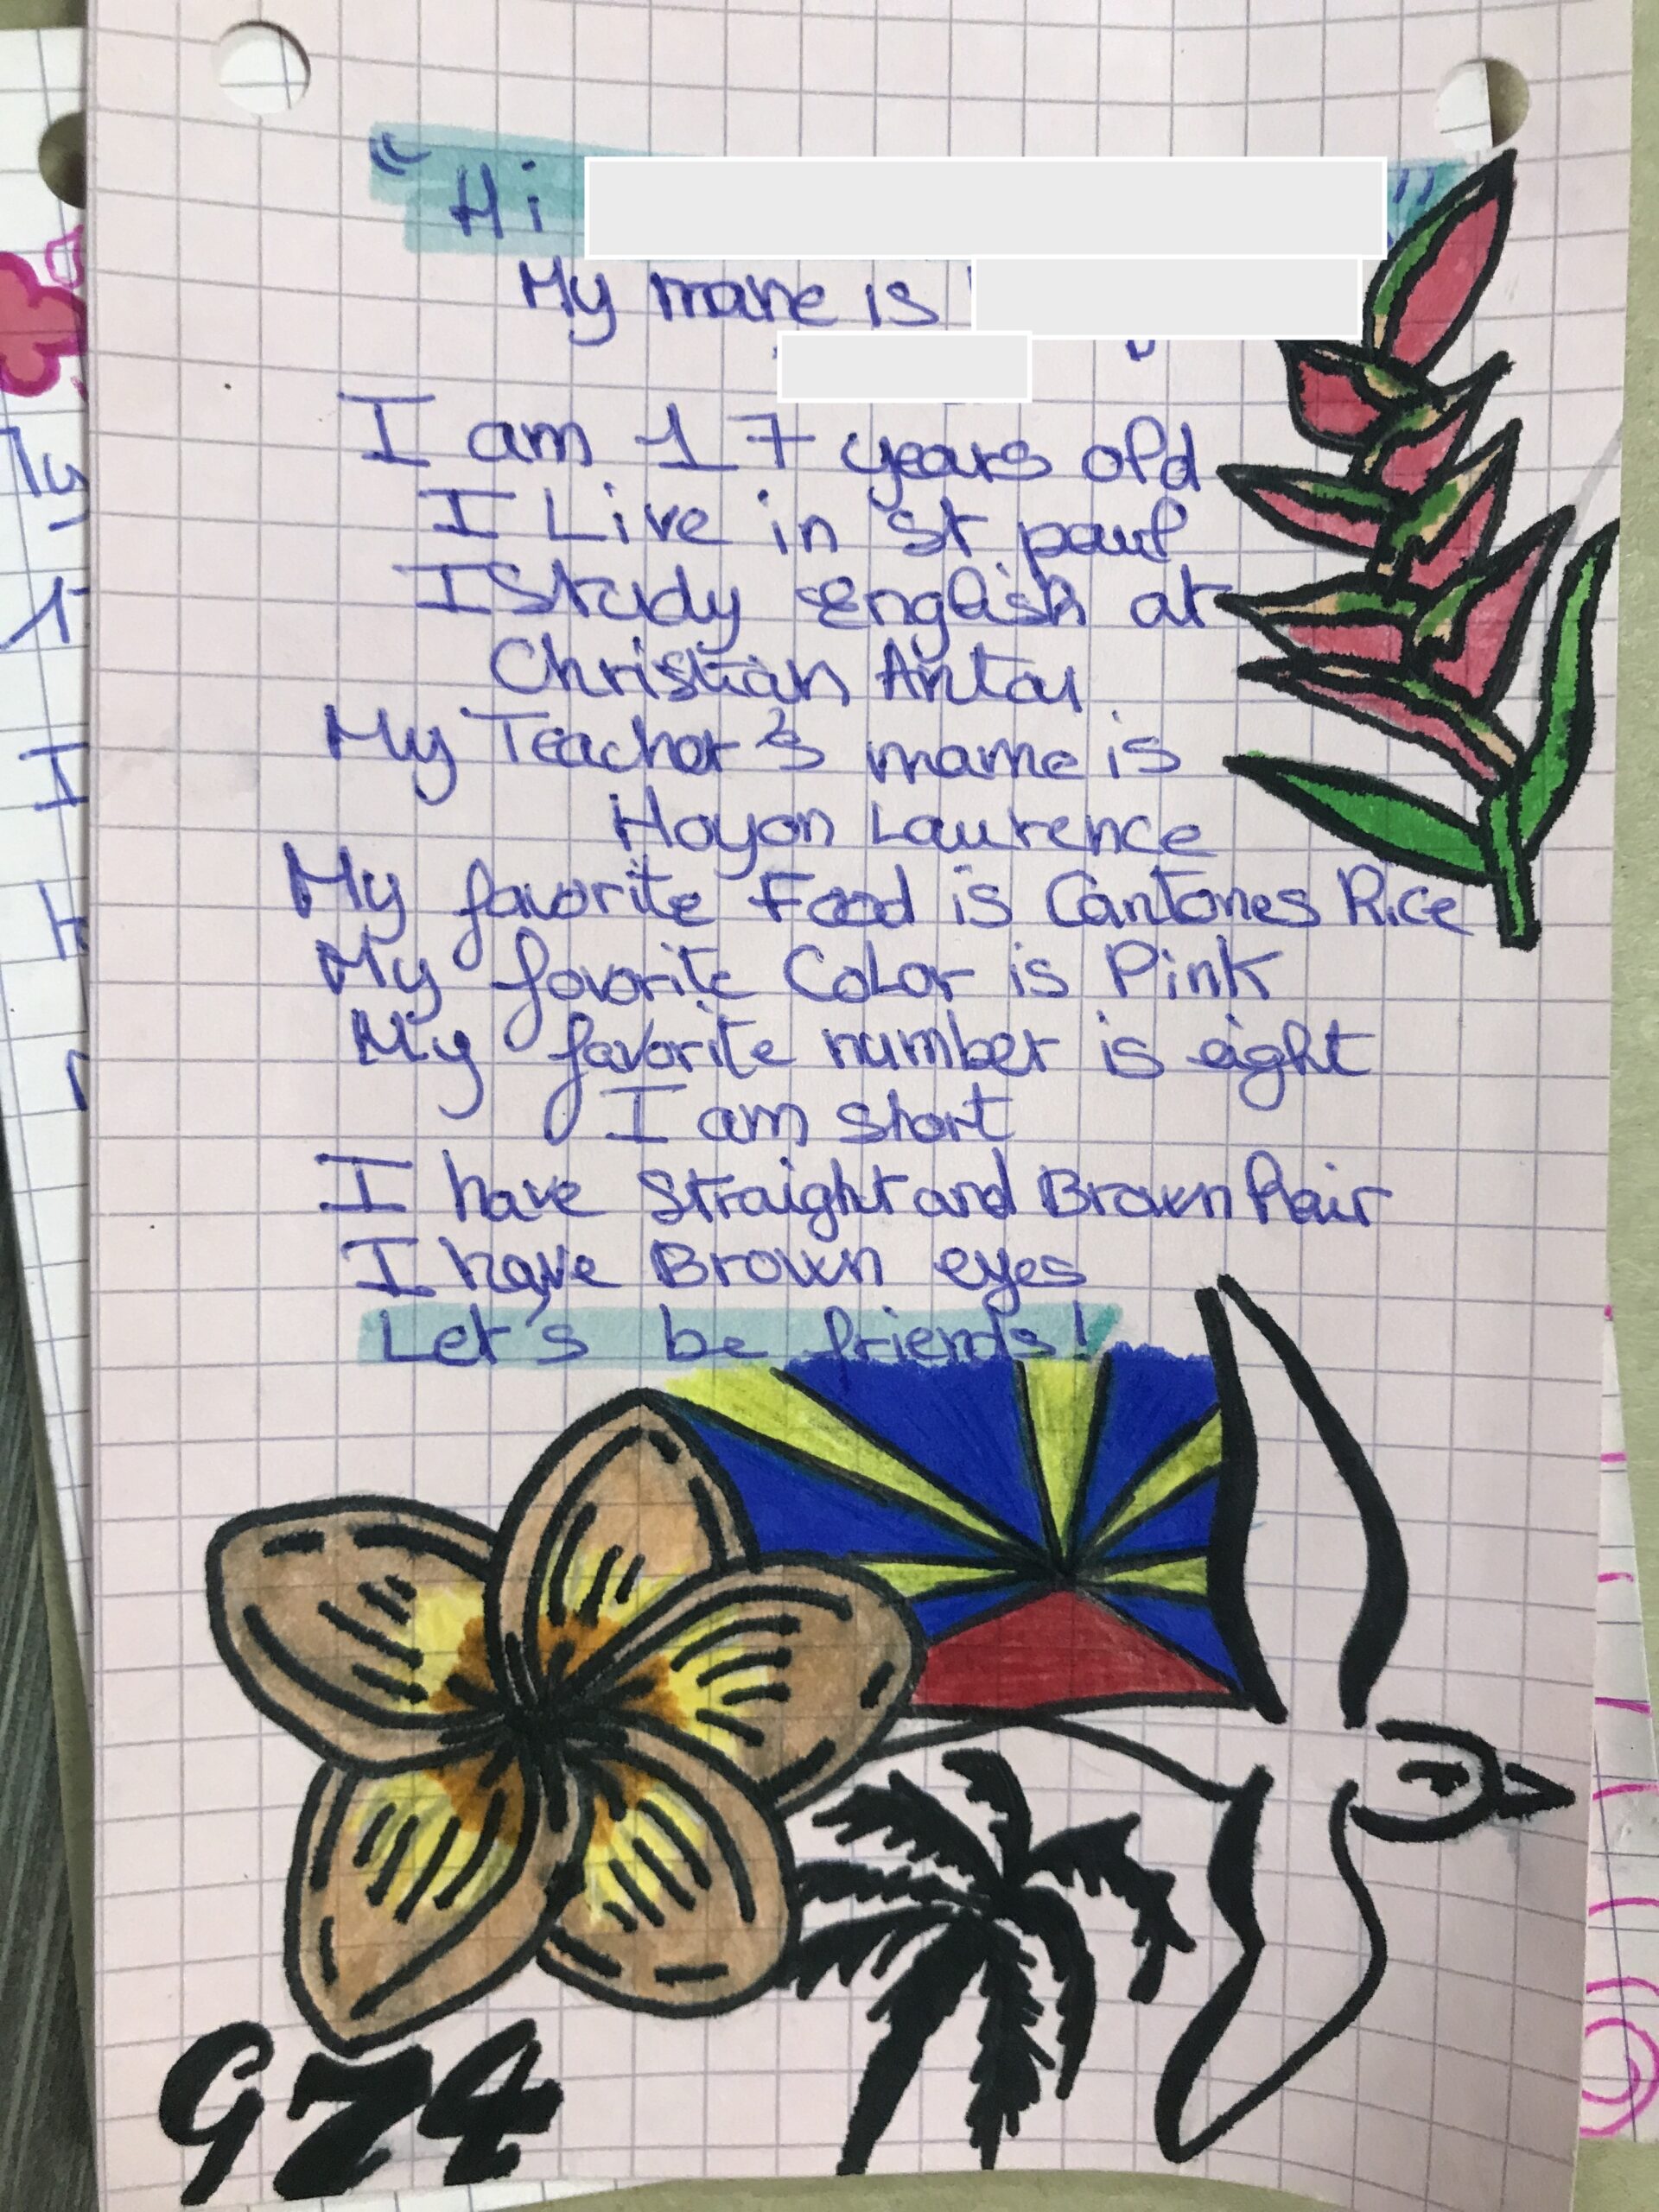 "Hi "
My name is
I am 17 years old
I Live in st paul
I Study English at
Christian Antou
My Teacher's name is
Hoyon Laurence
My favorite Food is Cantones Rice
My favorite Color is Pink
My favorite number is eight
I am short
I have Straight and Brown hair
I have Brown eyes
Let's be friends!
974